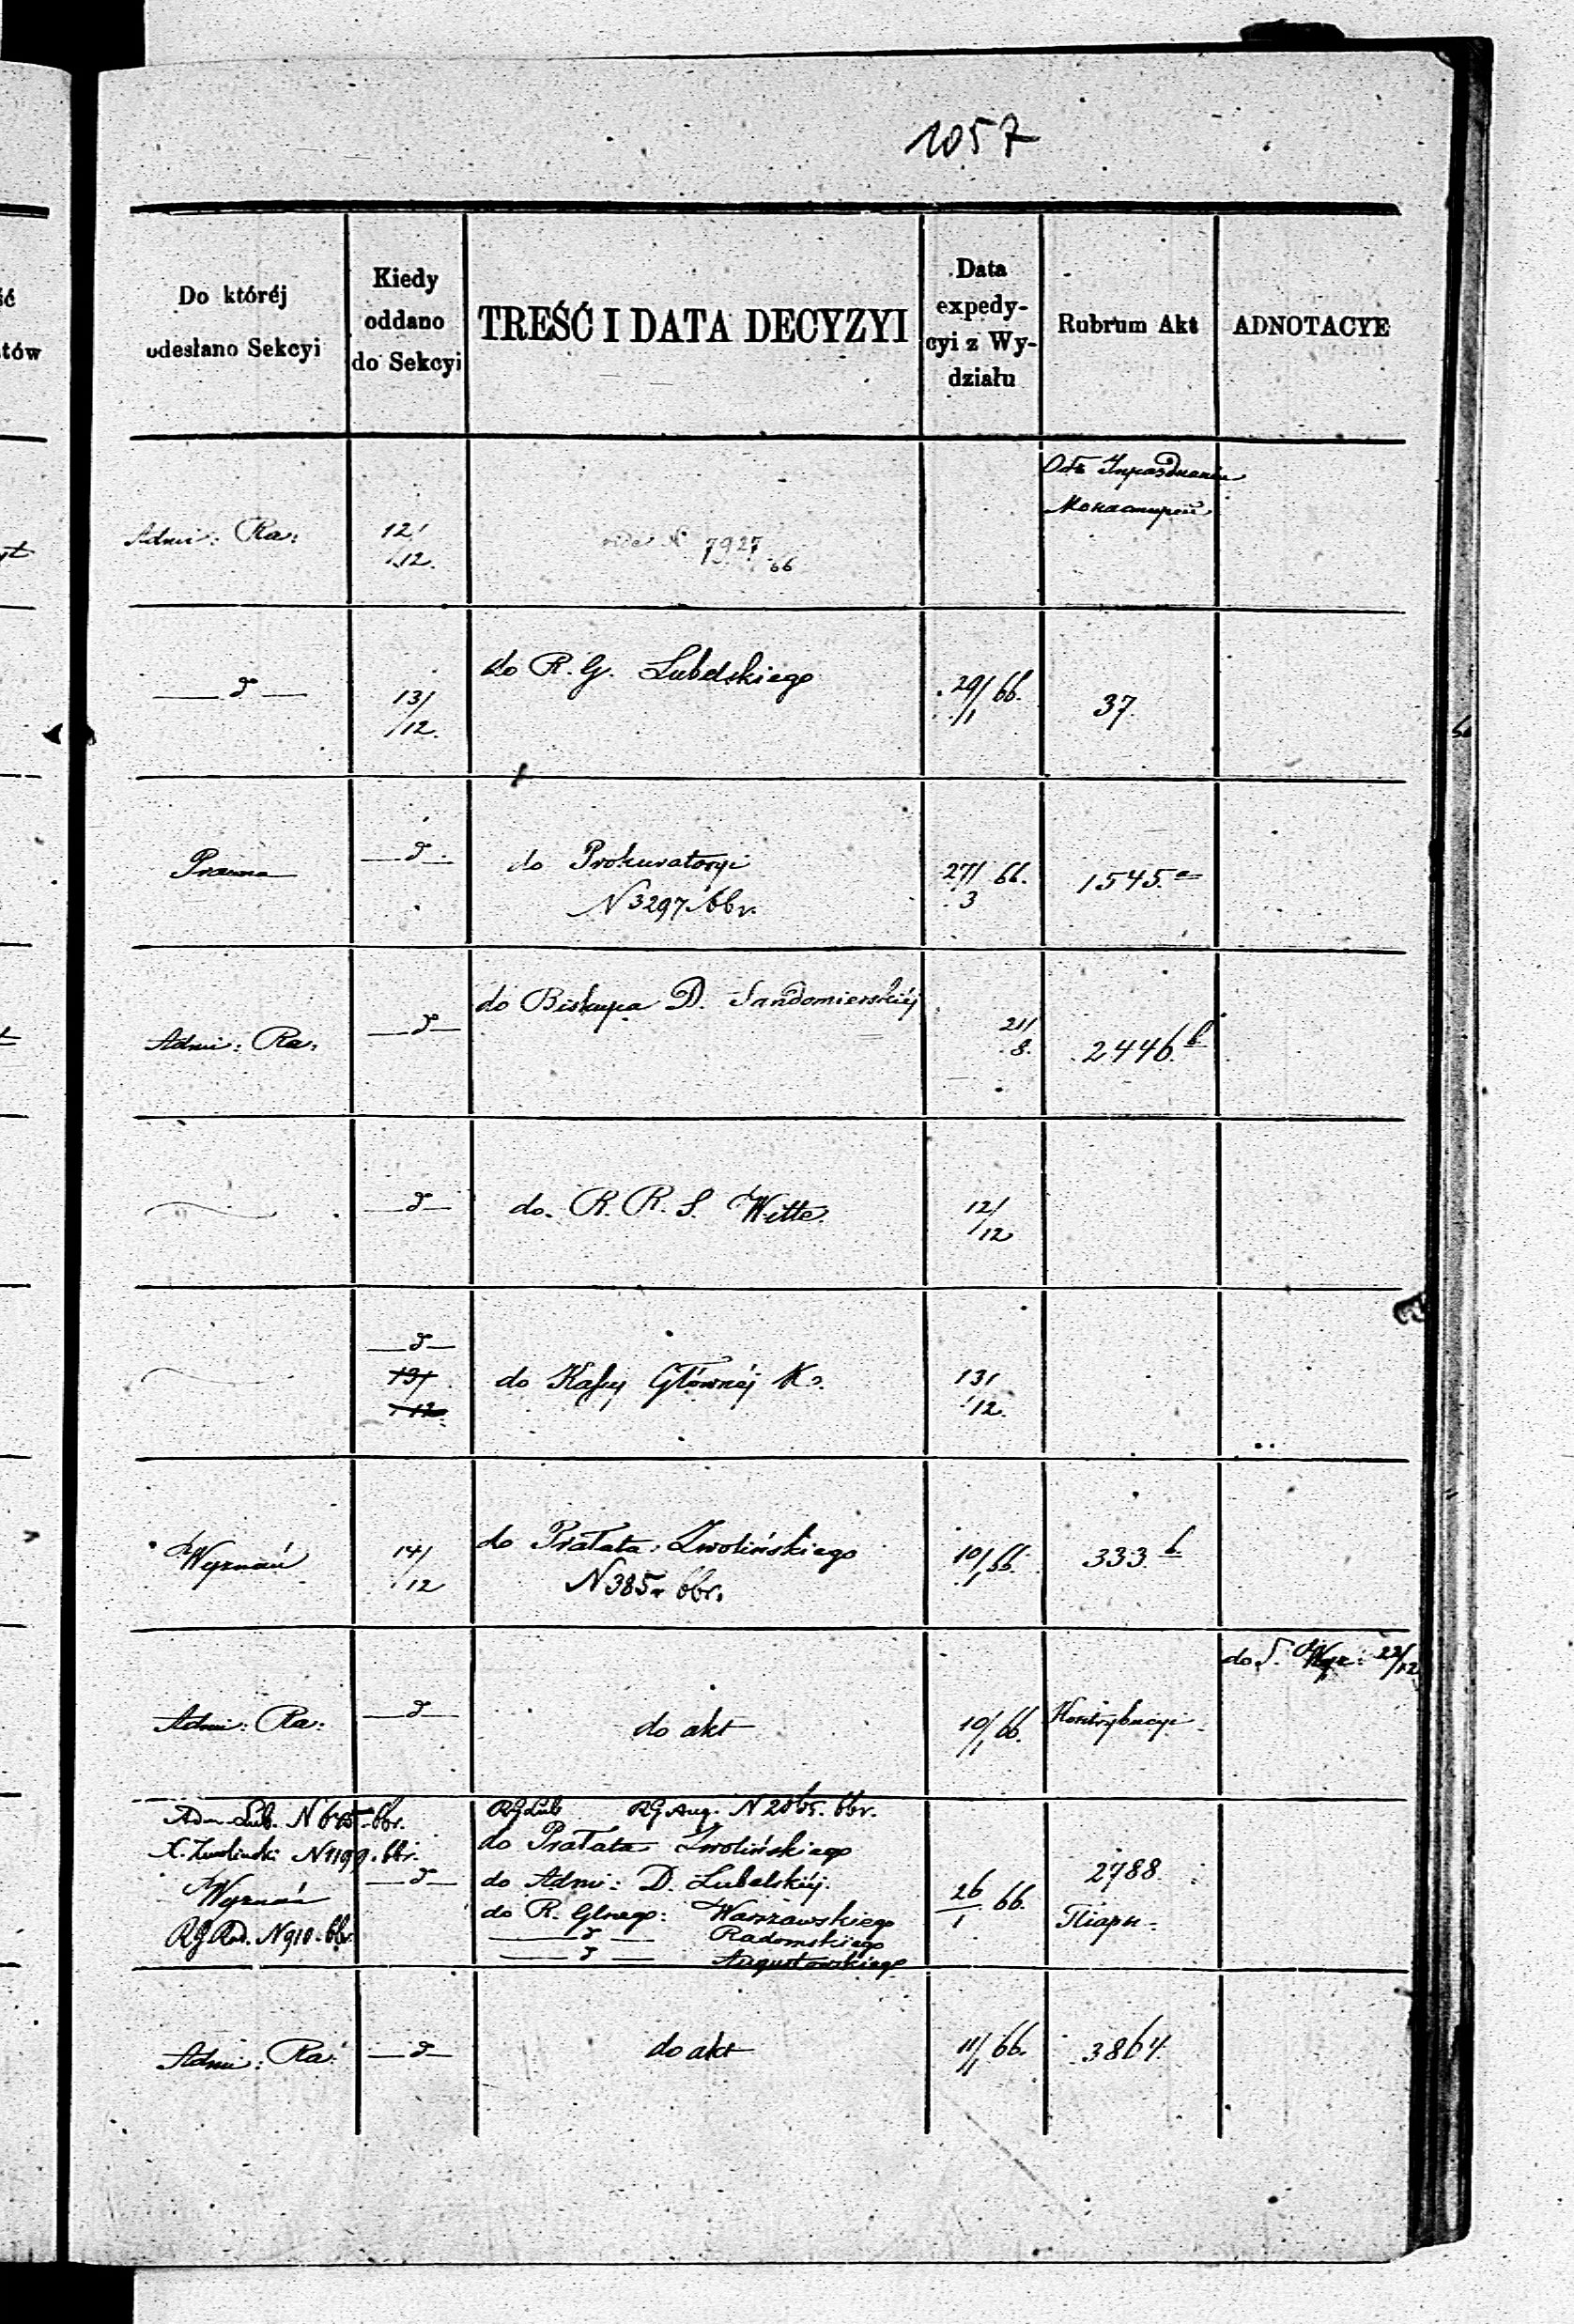 1057
Do któréj
odesłano Sekcyi
Kiedy
oddano
do Sekcyi
TREŚĆ I DATA DECYZYI
Data
expedy-
cyi z Wy-
działu
Rubrum Akt
ADNOTACYE
Admi: Ra:
12/
/12.
vide N 7927
66
Объ Упраздненiи
Монастырей
— d —
13/
/12.
do R. G. Lubelskiego
29/1 66.
37.
Prawna
— d —
do Prokuratoryi
N 3297. 66 r.
27/3 66.
1545.a
Admi: Ra:
— d —
do Biskupa D. Sandomierskiéj
21/
8.
2446.b
— d —
do. R. R. S. Witte.
12/
/12
— d —
13/
/12
do Kassy Głównéj K.
13/
/12.
Wyznań
14/
/12
do Prałata Zwolińskiego
N 385 r 66 r.
10/1 66.
333.b
do S. Wyz: 22/12
Admi: Ra:
— d —
do akt
10/1 66.
Kontrybucyi
Adm Lub. N 645 66 r.
X. Zwolinski N 1199. 66 r.
Wyznań
RG Rad. N 910. 66 r.
— d —
RG Lub RG Aug. N 2065. 66 r.
do Prałata Zwolińskiego
do Admi: D. Lubelskiéj.
do R. Glnego: Warszawskiego
— d — Radomskiego
— d — Augustowskiego
26/1 66.
2788.
Пiары.
Admi: Ra:
— d —
do akt
11/1 66.
3864.